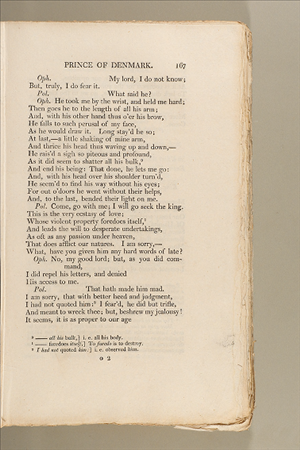 PRINCE OF DENMARK. 167
Oph. My lord, I do not know;
But, truly, I do fear it.
Pol. What said he?
Oph. He took me by the wrist, and held me hard;
Then goes he to the length of all his arm;
And, with his other hand thus o'er his brow,
He falls to such perusal of my face,
As he would draw it. Long stay'd he so;
At last,—a little shaking of mine arm,
And thrice his head thus waving up and down,—
He rais'd a sigh so piteous and profound,
As it did seem to shatter all his bulk,⁹
And end his being: That done, he lets me go:
And, with his head over his shoulder turn'd,
He seem'd to find his way without his eyes;
For out o'doors he went without their helps,
And, to the last, bended their light on me.
Pol. Come, go with me; I will go seek the king.
This is the very ecstasy of love;
Whose violent property foredoes itself,¹
And leads the will to desperate undertakings,
As oft as any passion under heaven,
That does afflict our natures. I am sorry,—
What, have you given him any hard words of late?
Oph. No, my good lord; but, as you did com-
mand,
I did repel his letters, and denied
His access to me.
Pol. That hath made him mad.
I am sorry, that with better heed and judgment,
I had not quoted him:² I fear'd, he did but trifle,
And meant to wreck thee; but, beshrew my jealousy!
It seems, it is as proper to our age
⁹ —— all his bulk,] i. e. all his body.
¹ —— foredoes itself,] To foredo is to destroy.
² I had not quoted him:] i. e. observed him.
O 2